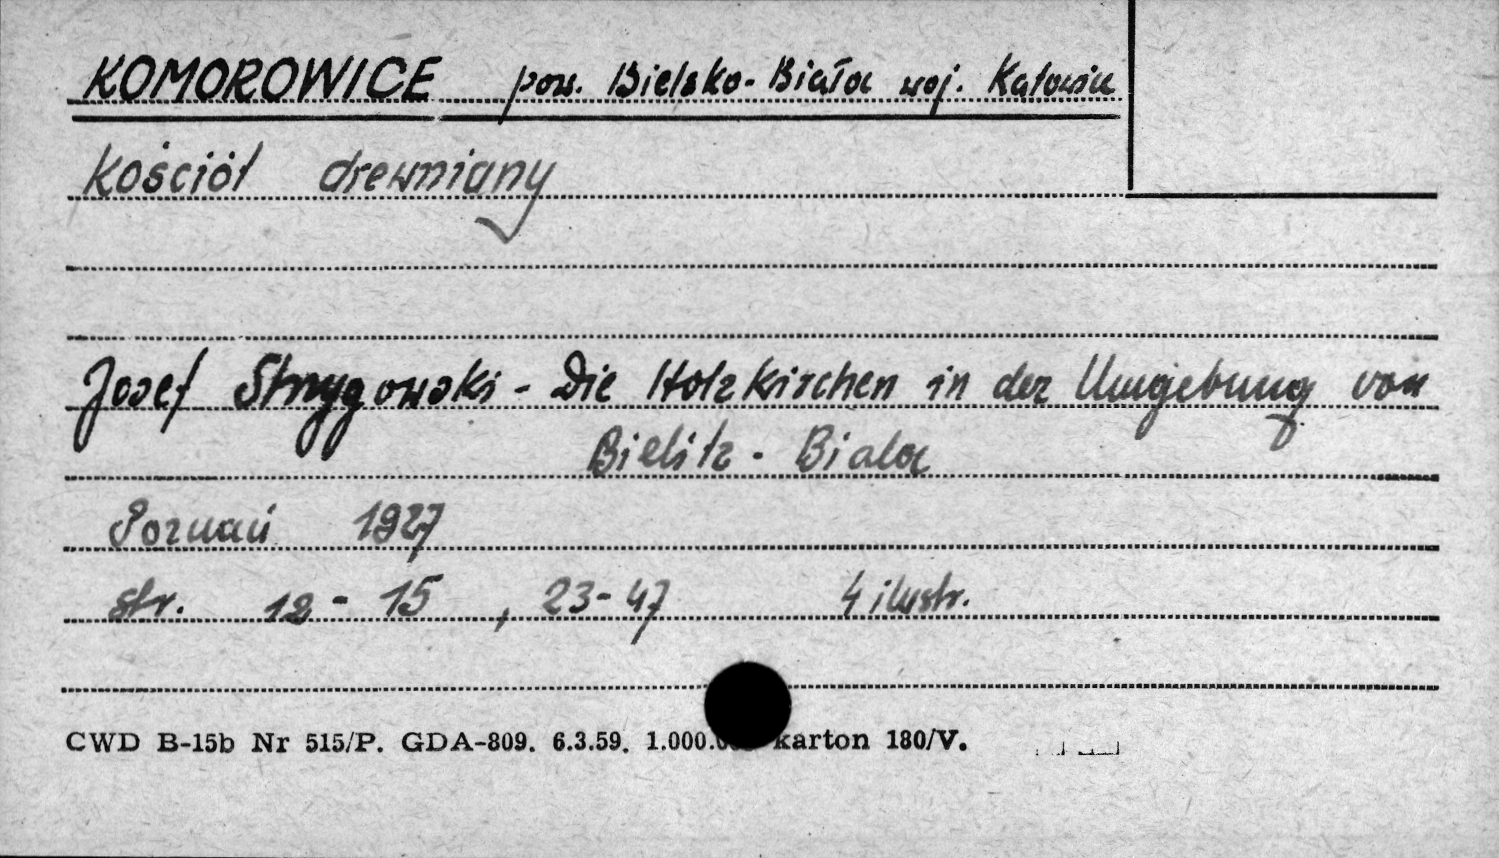 KOMOROWICE pow. Bielsko-Biała woj. Katowice
Kościół drewniany
Josef Strzygowski - Die Holzkirchen in der Umgebung von
Bielitz - Biala
Poznań 1927
str. 12 - 15 , 23-47 4 ilustr.
CWD B-15b Nr 515/P. GDA-809. 6.3.59. karton 180/V.